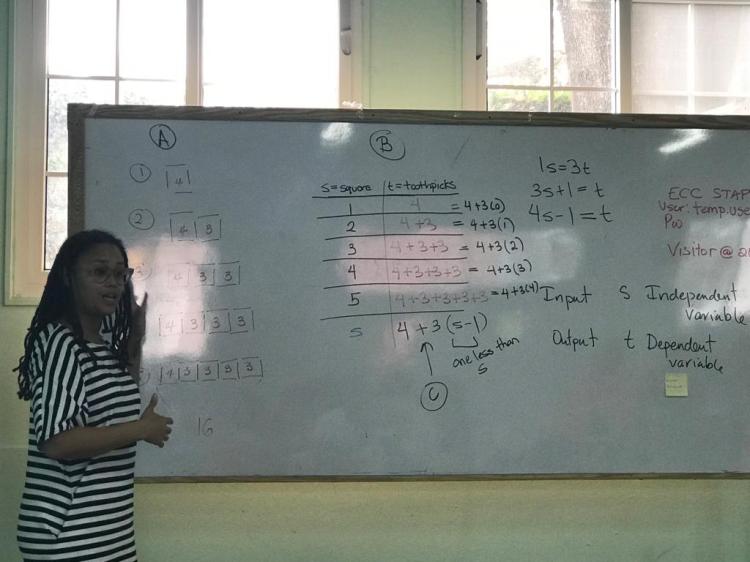 A
1 4
2 4 3
3 4 3 3
4 3 3 3
4 3 3 3 3
16
B
s=square t=toothpicks
1 4 = 4+3(0)
2 4+3 = 4+3(1)
3 4+3+3 = 4+3(2)
4 4+3+3+3 = 4+3(3)
5 4+3+3+3+3 = 4+3(4)
s 4+3(s-1)
one less than
s
C
1s=3t
3s+1=t
4s-1=t
Input s Independent
variable
Output t Dependent
variable
ECC STAF
User: temp.use
Pw
Visitor@20